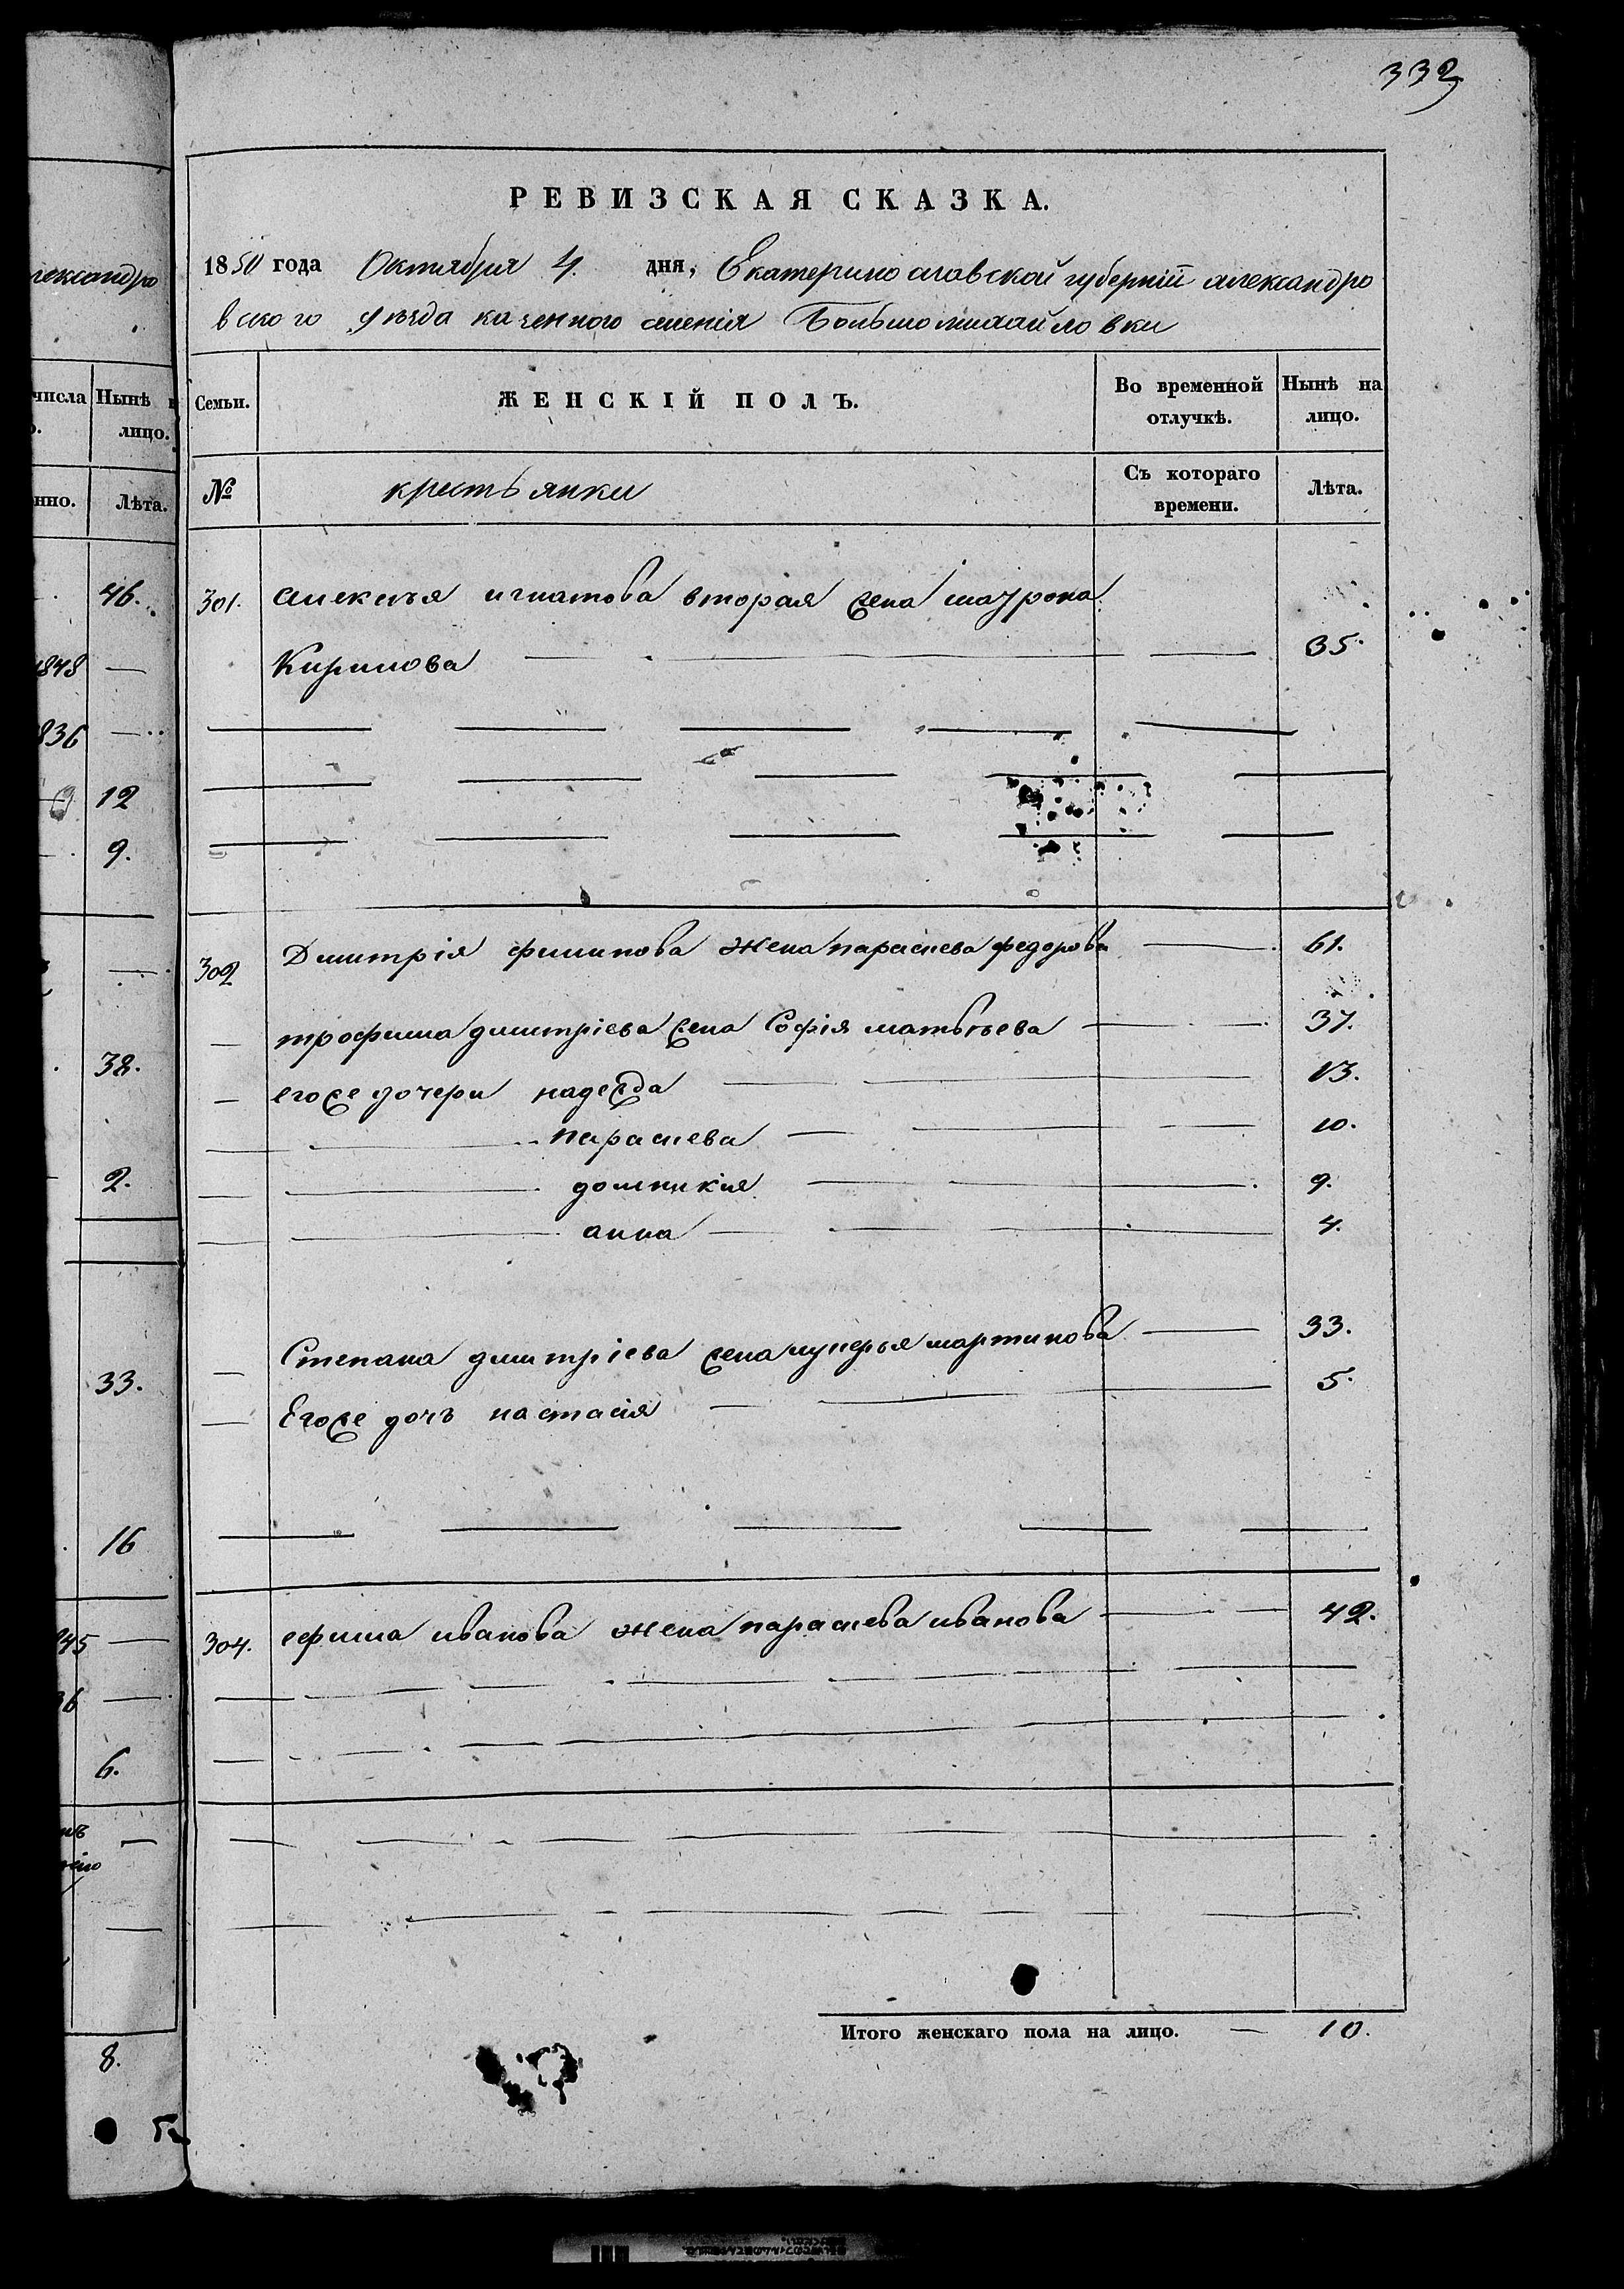 332
РЕВИЗСКАЯ СКАЗКА.
1850 года Октября 4. дня, Екатеринославской губерніи александро
вского уезда казенного селенія Большомихайловки
Семьи. ЖЕНСКІЙ ПОЛЪ. Во временной отлучкѣ. Нынѣ на лицо.
№ крестьянки Съ котораго времени. Лѣта.
301. алексея игнатова вторая жена
Кирилова 35.
302 Дмитрія филипова жена параскева федорова 61.
трофима дмитріева жена Софія матвѣева 37.
егоже дочери надежда 13.
параскева 10.
домникия 9.
анна 4.
Степана дмитріева жена лукерья мартинова 33.
Егоже дочь настасія 5.
304. ефима иванова жена параскева иванова 42.
Итого женскаго пола на лицо. — 10.
числа Нынѣ
лицо.
Лѣта.
46.
1848 —
1836 —
12
9.
38.
2.
33.
16
6.
8.